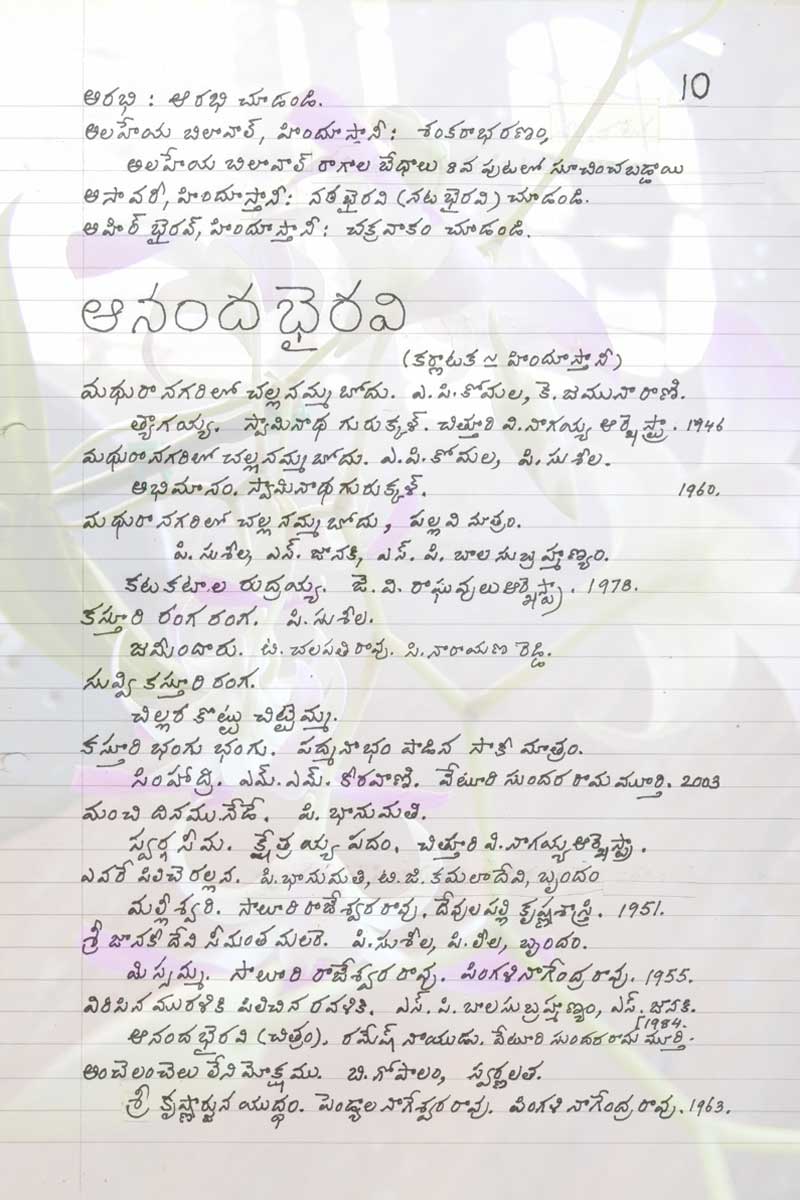 10
ఆరభి : ఆరభి చూడండి.
అలహేయ బిలావల్, హిందూస్తానీ : శంకరాభరణం,
అలహేయ బిలావల్ రాగాల బేధాలు 8వ పుటలో సూచించబడ్డాయి
ఆసావరి, హిందూస్తానీ: నఠభైరవి (నటభైరవి) చూడండి.
ఆహిర్ భైరవ్, హిందూస్తానీ : చక్రవాకం చూడండి.
ఆనంద భైరవి
(కర్ణాటక ~ హిందూస్తానీ)
మథురా నగరిలో చల్లనమ్మ బోదు. ఎ.పి.కోమల, కె. జమునారాణి.
త్యాగయ్య. స్వామినాథ గురుక్కళ్. చిత్తూరి వి.నాగయ్య ఆర్కెస్ట్రా. 1946
మథురానగరిలో చల్లనమ్మ బోదు. ఎ.పి.కోమల, పి. సుశీల.
అభిమానం. స్వామినాథ గురుక్కళ్. 1960.
మథురానగరిలో చల్లనమ్మ బోదు, పల్లవి మాత్రం.
పి. సుశీల, ఎస్. జానకి, ఎస్. పి. బాలసుబ్రహ్మణ్యం.
కటకటాల రుద్రయ్య. జె. వి. రాఘవులు ఆర్కెస్ట్రా. 1978.
కస్తూరి రంగ రంగ. పి.సుశీల.
జమీందారు. టి. చలపతిరావు. సి.నారాయణ రెడ్డి.
సువ్వి కస్తూరి రంగ.
చిల్లర కొట్టు చిట్టెమ్మ.
కస్తూరి భంగు భంగు. పద్మనాభం పాడిన సాకీ మాత్రం.
సింహాద్రి. ఎమ్.ఎమ్. కీరవాణి. వేటూరి సుందర రామమూర్తి. 2003
మంచి దినము నేడే. పి. భానుమతి.
స్వర్గసీమ. క్షేత్రయ్య పదం. చిత్తూరి వి.నాగయ్య ఆర్కెస్ట్రా.
ఎవరే పిలిచె రల్లన. పి.భానుమతి, టి.జి.కమలాదేవి, బృందం
మల్లీశ్వరి. సాలూరి రాజేశ్వరరావు. దేవులపల్లి కృష్ణశాస్త్రి. 1951.
శ్రీ జానకీ దేవి సీమంత మలరె. పి.సుశీల, పి.లీల, బృందం.
మిస్సమ్మ. సాలూరి రాజేశ్వరరావు. పింగళినాగేంద్రరావు. 1955.
విరిసిన మురళికి పిలిచిన రవళికి. ఎస్. పి. బాలసుబ్రహ్మణ్యం, ఎస్. జానకి.
ఆనంద భైరవి (చిత్రం). రమేష్ నాయుడు. వేటూరి సుందరరామ మూర్తి. [1984.
అంచెలంచెలు లేని మోక్షము. బి.గోపాలం, స్వర్ణలత.
శ్రీ కృష్ణార్జున యుద్ధం. పెండ్యాల నాగేశ్వరరావు. పింగళి నాగేంద్రరావు. 1963.